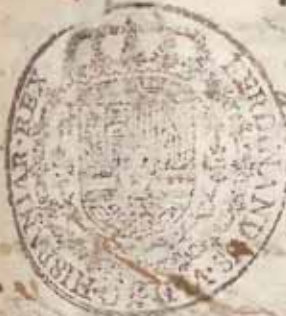 FERDINANDUS D G HISPANIAR·REX